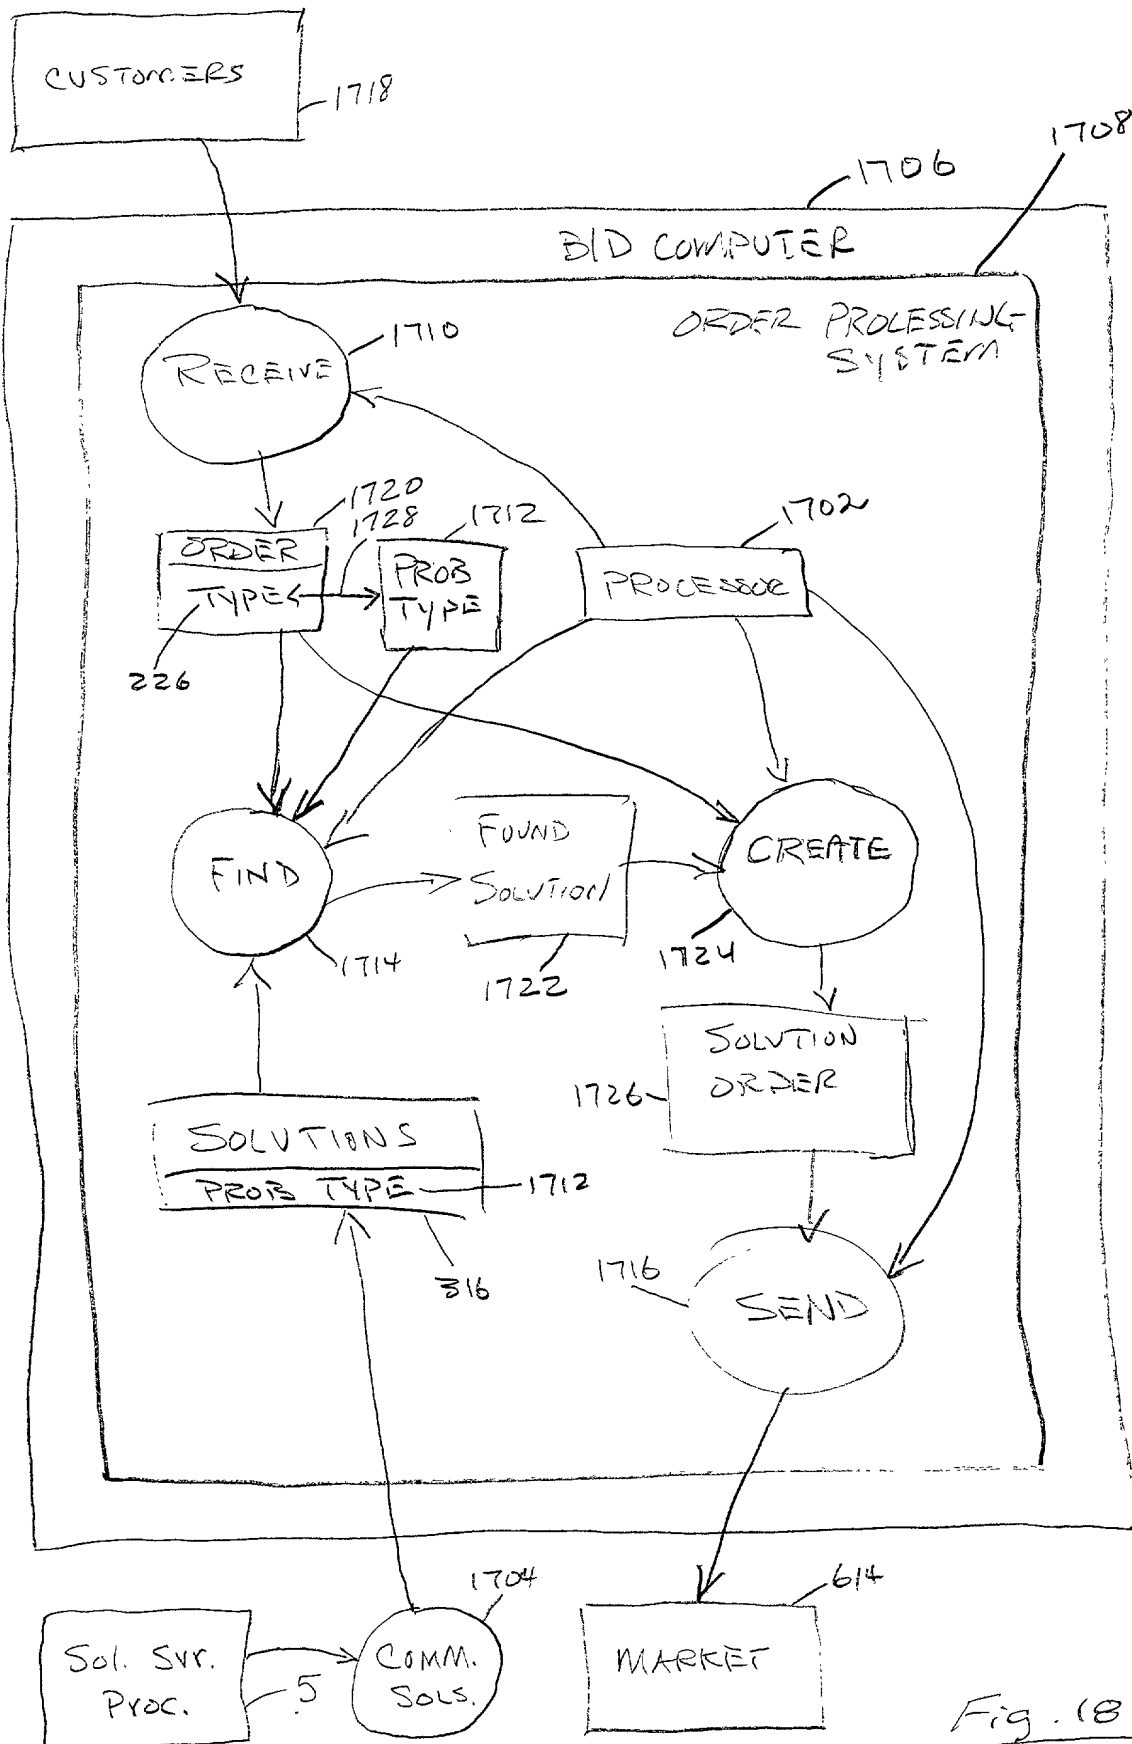 CUSTOMERS
1718
1708
1706
BID COMPUTER
ORDER PROCESSING
SYSTEM
RECEIVE
1710
1720
1728
1712
1702
ORDER
TYPE
PROB
TYPE
PROCESSOR
226
FIND
1714
FOUND
SOLUTION
1722
CREATE
1724
SOLUTION
ORDER
1726
SOLUTIONS
PROB TYPE
1712
316
1716
SEND
1704
614
Sol. Svr.
Proc.
5
COMM.
SOLS.
MARKET
Fig. 18